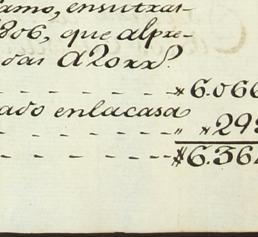 amo, ensutras-
306, que alpre-
das a 20 xx?
- - - - - - *6.066
ado enlacasa
- - - - - " *298
- - - - - - $6.364